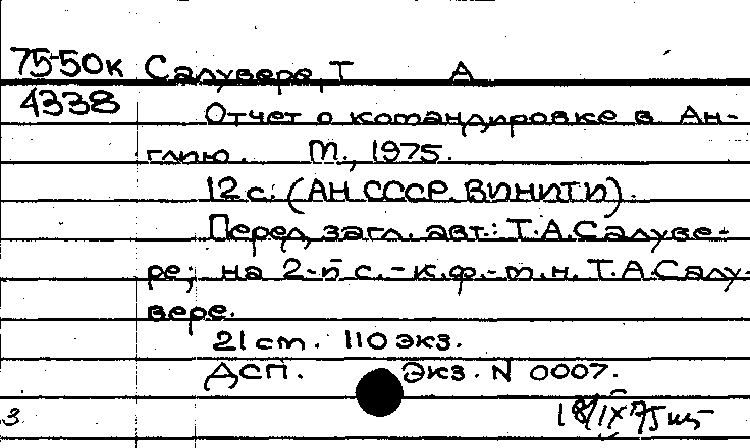 75-50к Салувере, Т А
4338 Отчет о командировке в Ан-
глию. М., 1975.
12 с. (АН СССР. ВИНИТИ).
Перед загл. авт.: Т.А.Салуве-
ре; на 2-й с. - к.ф.-м.н. Т.А.Салу-
вере.
21 см. 110 экз.
ДСП. Экз. N 0007.
3 18/IX 75